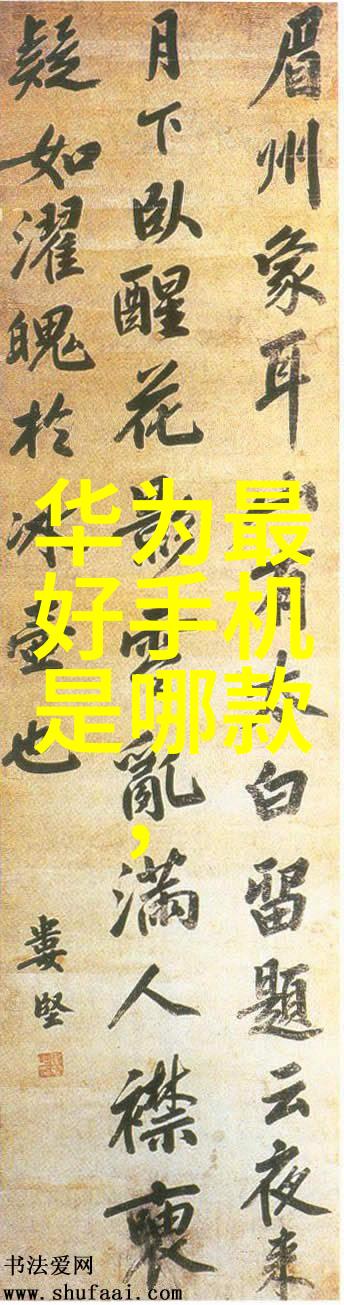 眉州象耳山有太白留題云夜来
月下臥醒花影零亂滿人襟
疑如濯魄於冰壺也
婁堅
华为最
好手机
是哪款
,
书法爱网
www.shufaai.com